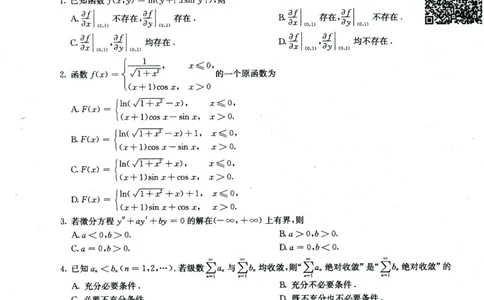 1. 已知函数 f(x,y) = ln(y+|x sin y|),则
A. ∂f/∂x|(0,1) 不存在, ∂f/∂y|(0,1) 存在. B. ∂f/∂x|(0,1) 存在, ∂f/∂y|(0,1) 不存在.
C. ∂f/∂x|(0,1), ∂f/∂y|(0,1) 均存在. D. ∂f/∂x|(0,1), ∂f/∂y|(0,1) 均不存在.
2. 函数 f(x) = { 1/√(1+x²), x⩽0, (x+1)cos x, x>0 的一个原函数为
A. F(x) = { ln(√(1+x²)−x), x⩽0, (x+1)cos x−sin x, x>0.
B. F(x) = { ln(√(1+x²)−x)+1, x⩽0, (x+1)cos x−sin x, x>0.
C. F(x) = { ln(√(1+x²)+x), x⩽0, (x+1)sin x+cos x, x>0.
D. F(x) = { ln(√(1+x²)+x)+1, x⩽0, (x+1)sin x+cos x, x>0.
3. 若微分方程 y″+ay′+by=0 的解在(−∞,+∞) 上有界,则
A. a<0,b>0. B. a>0,b>0.
C. a=0,b>0. D. a=0,b<0.
4. 已知 aₙ<bₙ(n=1,2,⋯).若级数 ∑(n=1→∞) aₙ 与 ∑(n=1→∞) bₙ 均收敛,则“∑(n=1→∞) aₙ 绝对收敛”是“∑(n=1→∞) bₙ 绝对收敛”的
A. 充分必要条件. B. 充分不必要条件.
C. 必要不充分条件. D. 既不充分也不必要条件.